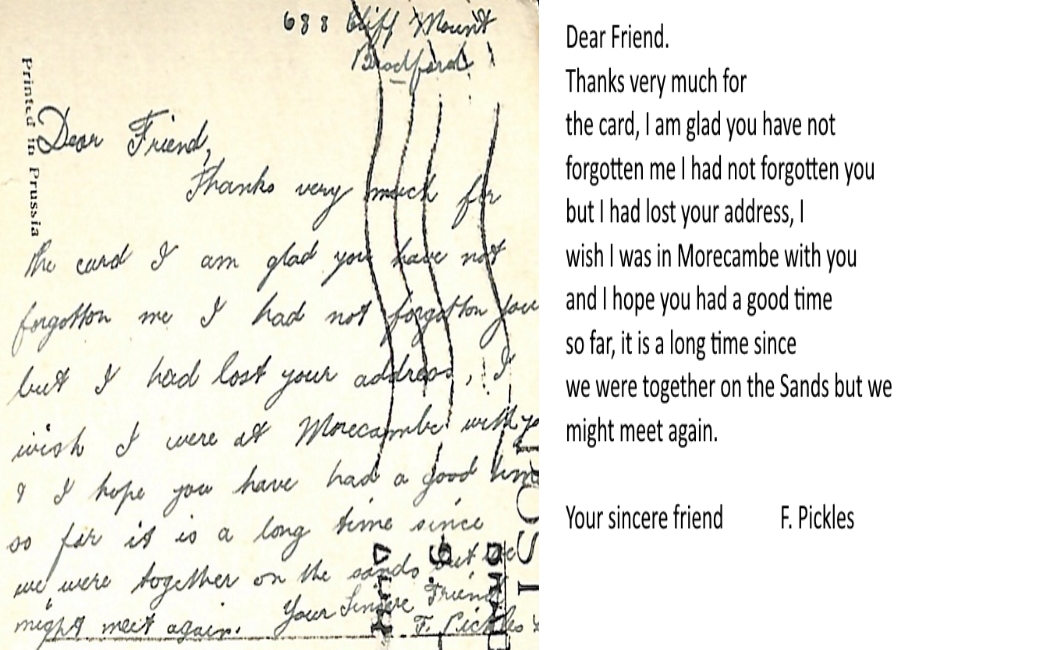 688 Cliff Mount
Bradford
Printed in Prussia
Dear Friend,
Thanks very much for
the card I am glad you have not
forgotten me I had not forgotten you
but I had lost your address, I
wish I were at Morecambe with
& I hope you have had a good time
so far it is a long time since
we were together on the sands but we
might meet again.
Your Sincere Friend
F. Pickles
Dear Friend.
Thanks very much for
the card, I am glad you have not
forgotten me I had not forgotten you
but I had lost your address, I
wish I was in Morecambe with you
and I hope you had a good time
so far, it is a long time since
we were together on the Sands but we
might meet again.
Your sincere friend F. Pickles